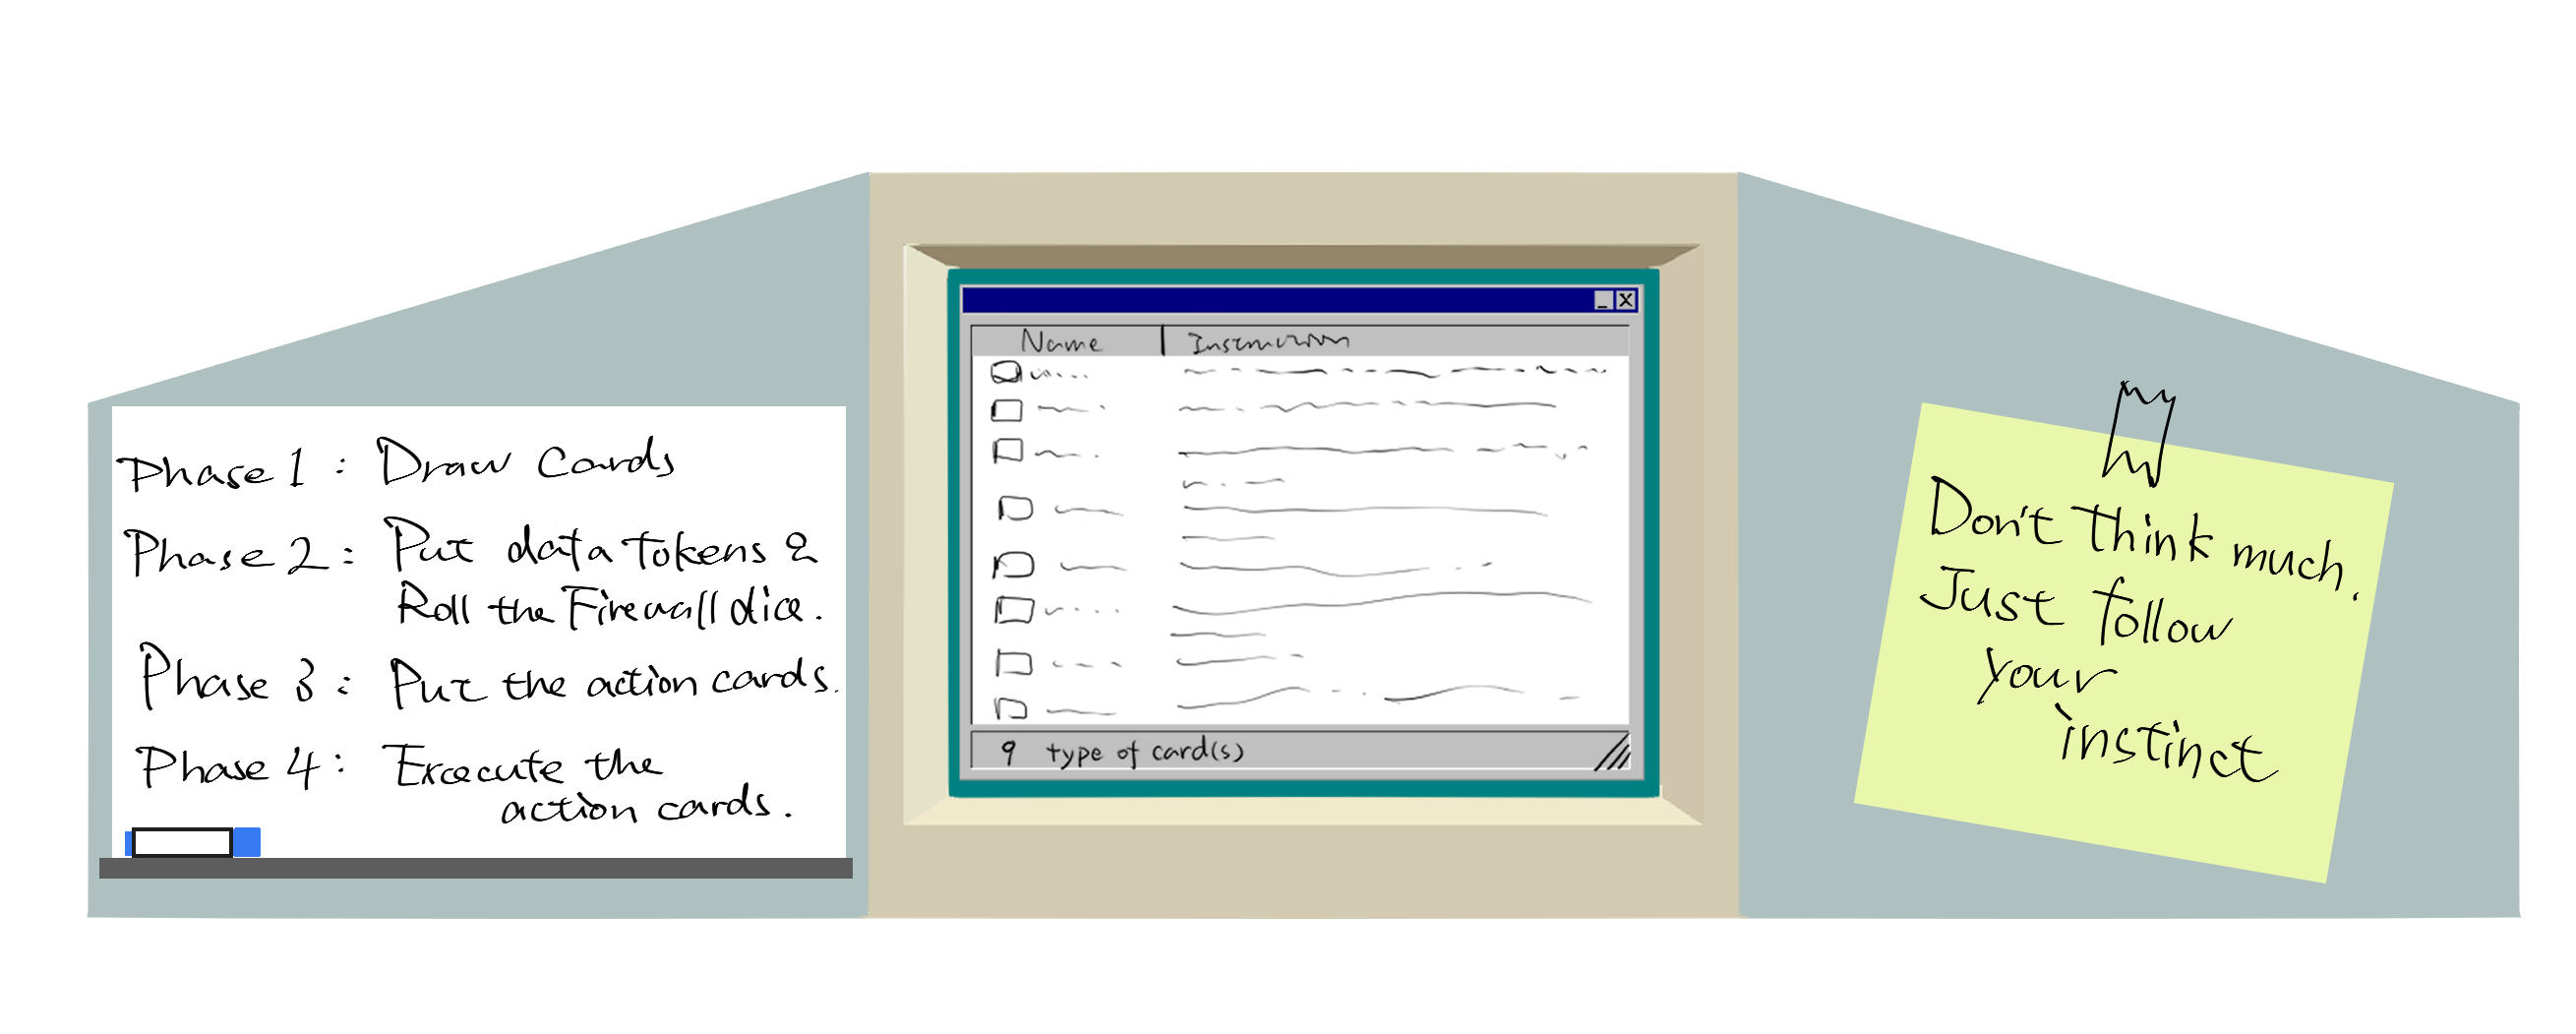 Phase 1 : Draw Cards
Phase 2 : Put data tokens &
Roll the Firewall dice.
Phase 3 : Put the action cards.
Phase 4 : Excecute the
action cards.
_ X
Name | Instruction
9 type of card(s)
Don't think much.
Just follow
your
instinct